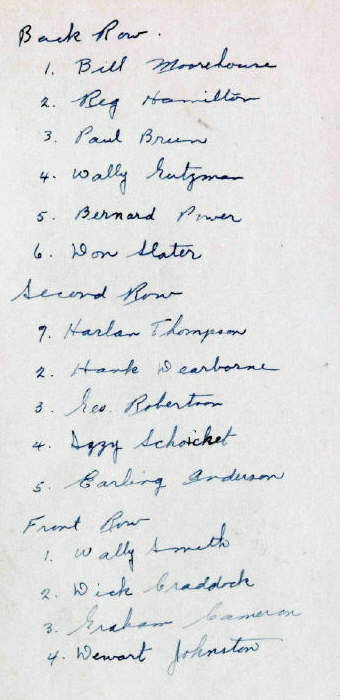 Back Row.
1. Bill Moorehouse
2. Reg Hamilton
3. Paul Breen
4. Wally Gutzman
5. Bernard Power
6. Don Slater
Second Row
1. Harlan Thompson
2. Hank Dearborne
3. Geo. Robertson
4. Izzy Schoicket
5. Carling Anderson
Front Row
1. Wally Smith
2. Dick Craddock
3. Graham Cameron
4. Dewart Johnston